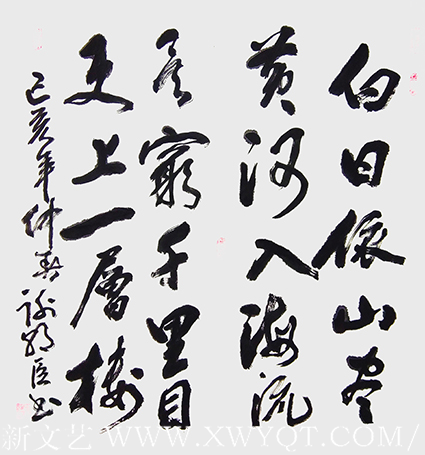 白日依山尽
黄河入海流
欲窮千里目
更上一層楼
己亥年仲春 书
新文艺 WWW.XWYQT.COM/